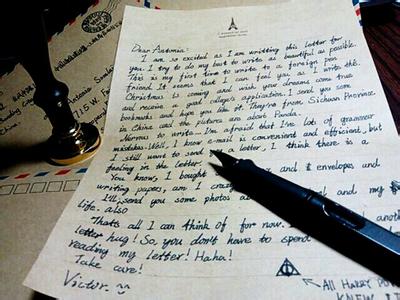 Dear Antonia:
I am so excited as I am writing this letter for
you. I try to do my best to write as beautiful as possible.
This is my first time to write to a foreign pen
friend. It seems that I can feel you as I write the.
Christmas is coming and wish your dreams come true
and receive a good college's application. I send you some
bookmarks and hope you like it. They're from Sichuan Province
in China and the pictures are about Panda.
Nervous to write. I'm afraid that I've lots of grammar
mistakes. Well, I know e-mail is convenient and efficient, but
I still want to send a letter, I think there is a
feeling in the letter.
You know, I bought and envelopes and
writing papers, am I crazy and my
I'll send you some photos
life. also
That's all I can think of for now. anoth
letter hug! So, you don't have to spend
reading my letter! Haha!
Take care!
Victor.
All Harry Po
KNEW I
Antonio
715 W.